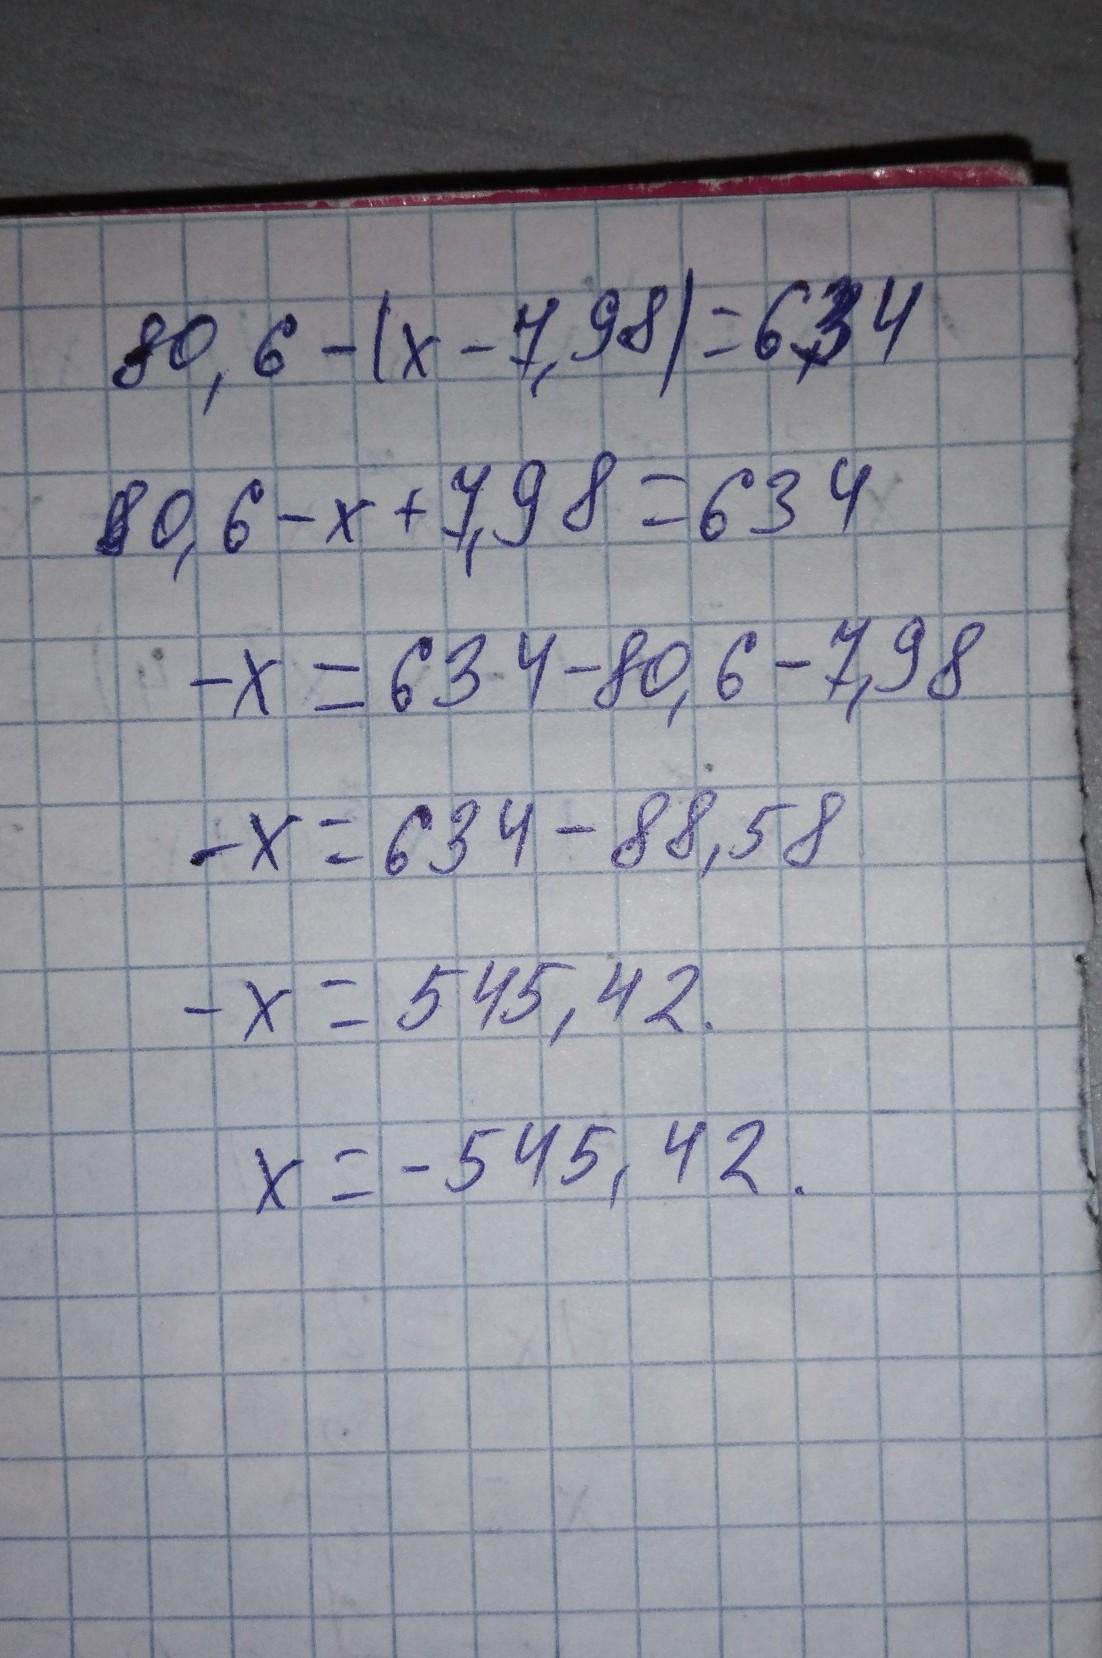 80,6-(x-7,98)=634
80,6-x+7,98=634
-x=634-80,6-7,98
-x=634-88,58
-x=545,42.
x=-545,42.